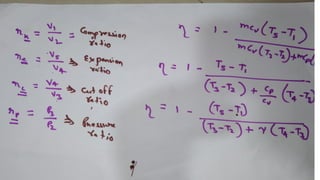 r_k = V₁/V₂ = Compression ratio
r_e = V₅/V₄ ⇒ Expansion ratio
r_c = V₄/V₃ ⇒ Cut off ratio
r_p = P₃/P₂ ⇒ Pressure ratio
η = 1 - mCv(T₅-T₁) / mCv(T₃-T₂)+mCp
η = 1 - T₅-T₁ / (T₃-T₂) + Cp/Cv (T₄-T₃)
η = 1 - (T₅-T₁) / (T₃-T₂) + γ(T₄-T₃)